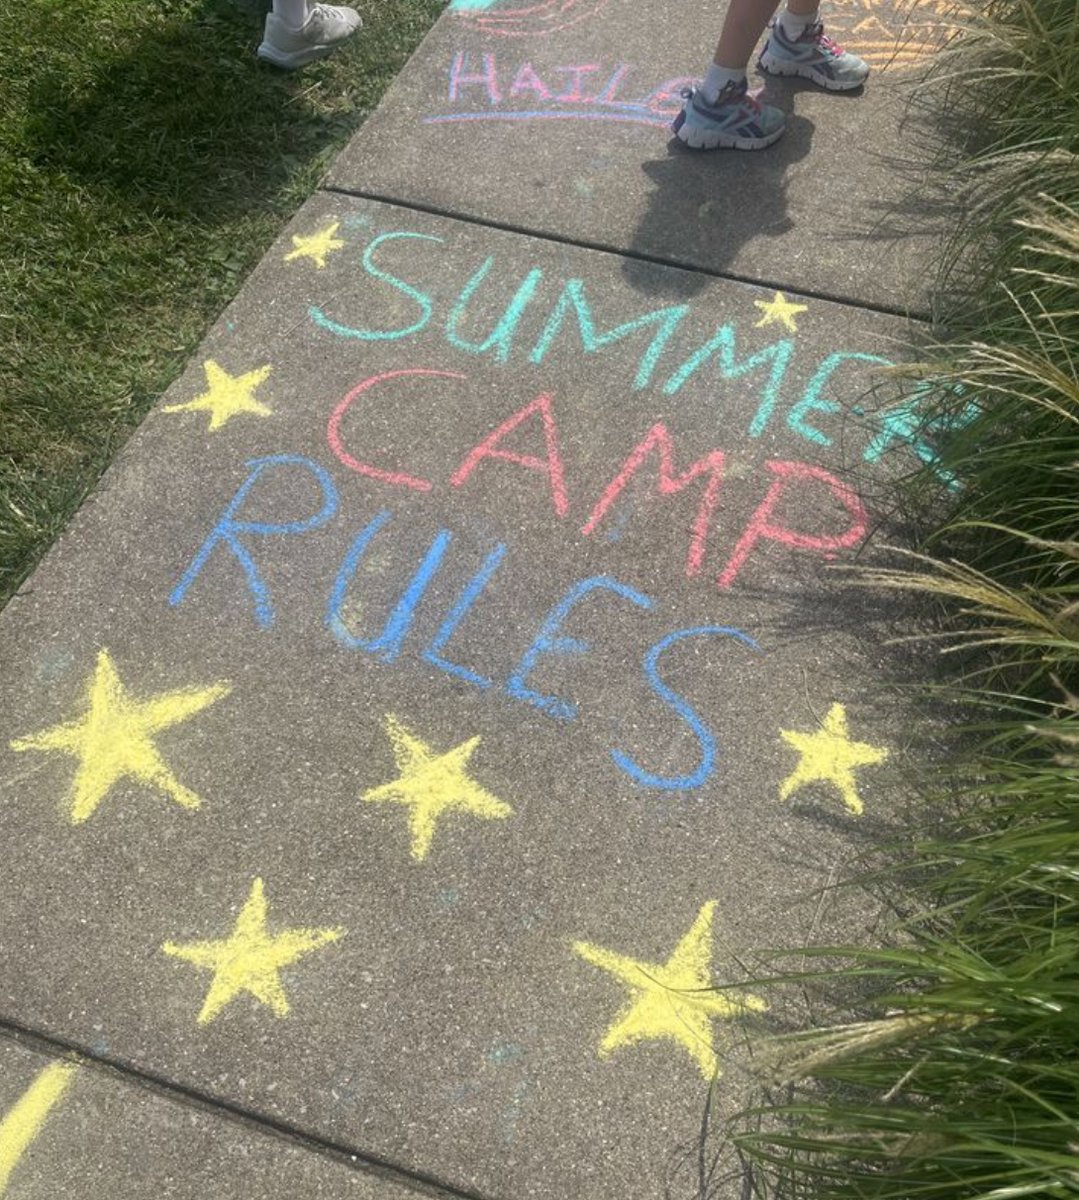 HAILE
SUMMER
CAMP
RULES